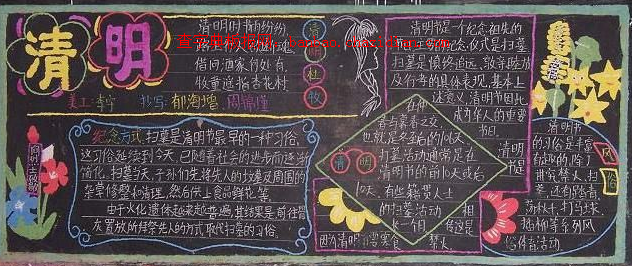 清明
清明时节雨纷纷
借问酒家何处有
牧童遥指杏花村
清明
杜
牧
美工:李宁 抄写:郁海鸿 周锦瑾
纪念方式 扫墓是清明节最早的一种习俗,
这习俗延续到今天,已随着社会的进步而逐渐
简化。扫墓当天,子孙们先将先人的坟墓及周围的
杂草修整和清理,然后供上食品鲜花等。
由于火化遗体越来越普遍,其结果是前往骨
灰置放地拜祭先人的方式取代扫墓的习俗。
清明节是一个纪念祖先的
节日。主要的纪念仪式是扫墓
扫墓是慎终追远、敦亲睦族
及行孝的具体表现,基本上
述意义,清明节因此
成为华人的重要
节日。
清明
在仲
春与暮春之交
也就是冬至后的106天
扫墓活动通常是在
清明节的前10天或后
10天。有些籍贯人士
的扫墓活动
清明
节是
清明节
的习俗是丰富
有趣的,除了
讲究禁火、扫
墓,还有踏青、
荡秋千、打马球、
插柳等系列风
俗体育活动。
风
俗